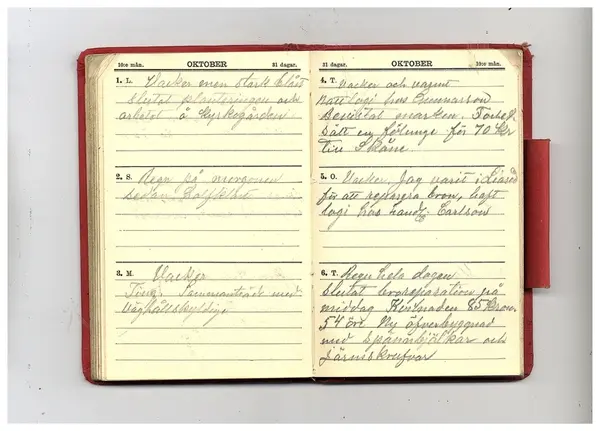 10:e mån. OKTOBER 31 dagar.
1. L. Vacker men stark blåst
slutat planteringen och
arbetet å Kyrkogården
2. S. Regn på morgonen
sedan halfklart
3. M. Vacker
Ting. Sammanträdt med
Väghållskyldige
31 dagar. OKTOBER 10:e mån.
4. T. Vacker och varmt
Nattlogi hos Gunnarson
Besiktat marken.
sålt en fölunge för 70 Kr
till Skåne
5. O. Vacker. Jag varit i
för att reparera bron, haft
logi hos handl. Carlson
6. T. Regn hela dagen
slutat broreparation på
middag Kostnaden 85 Kronor
54 öre Ny öfverbyggnad
med bjälkar och
järnskrufvar